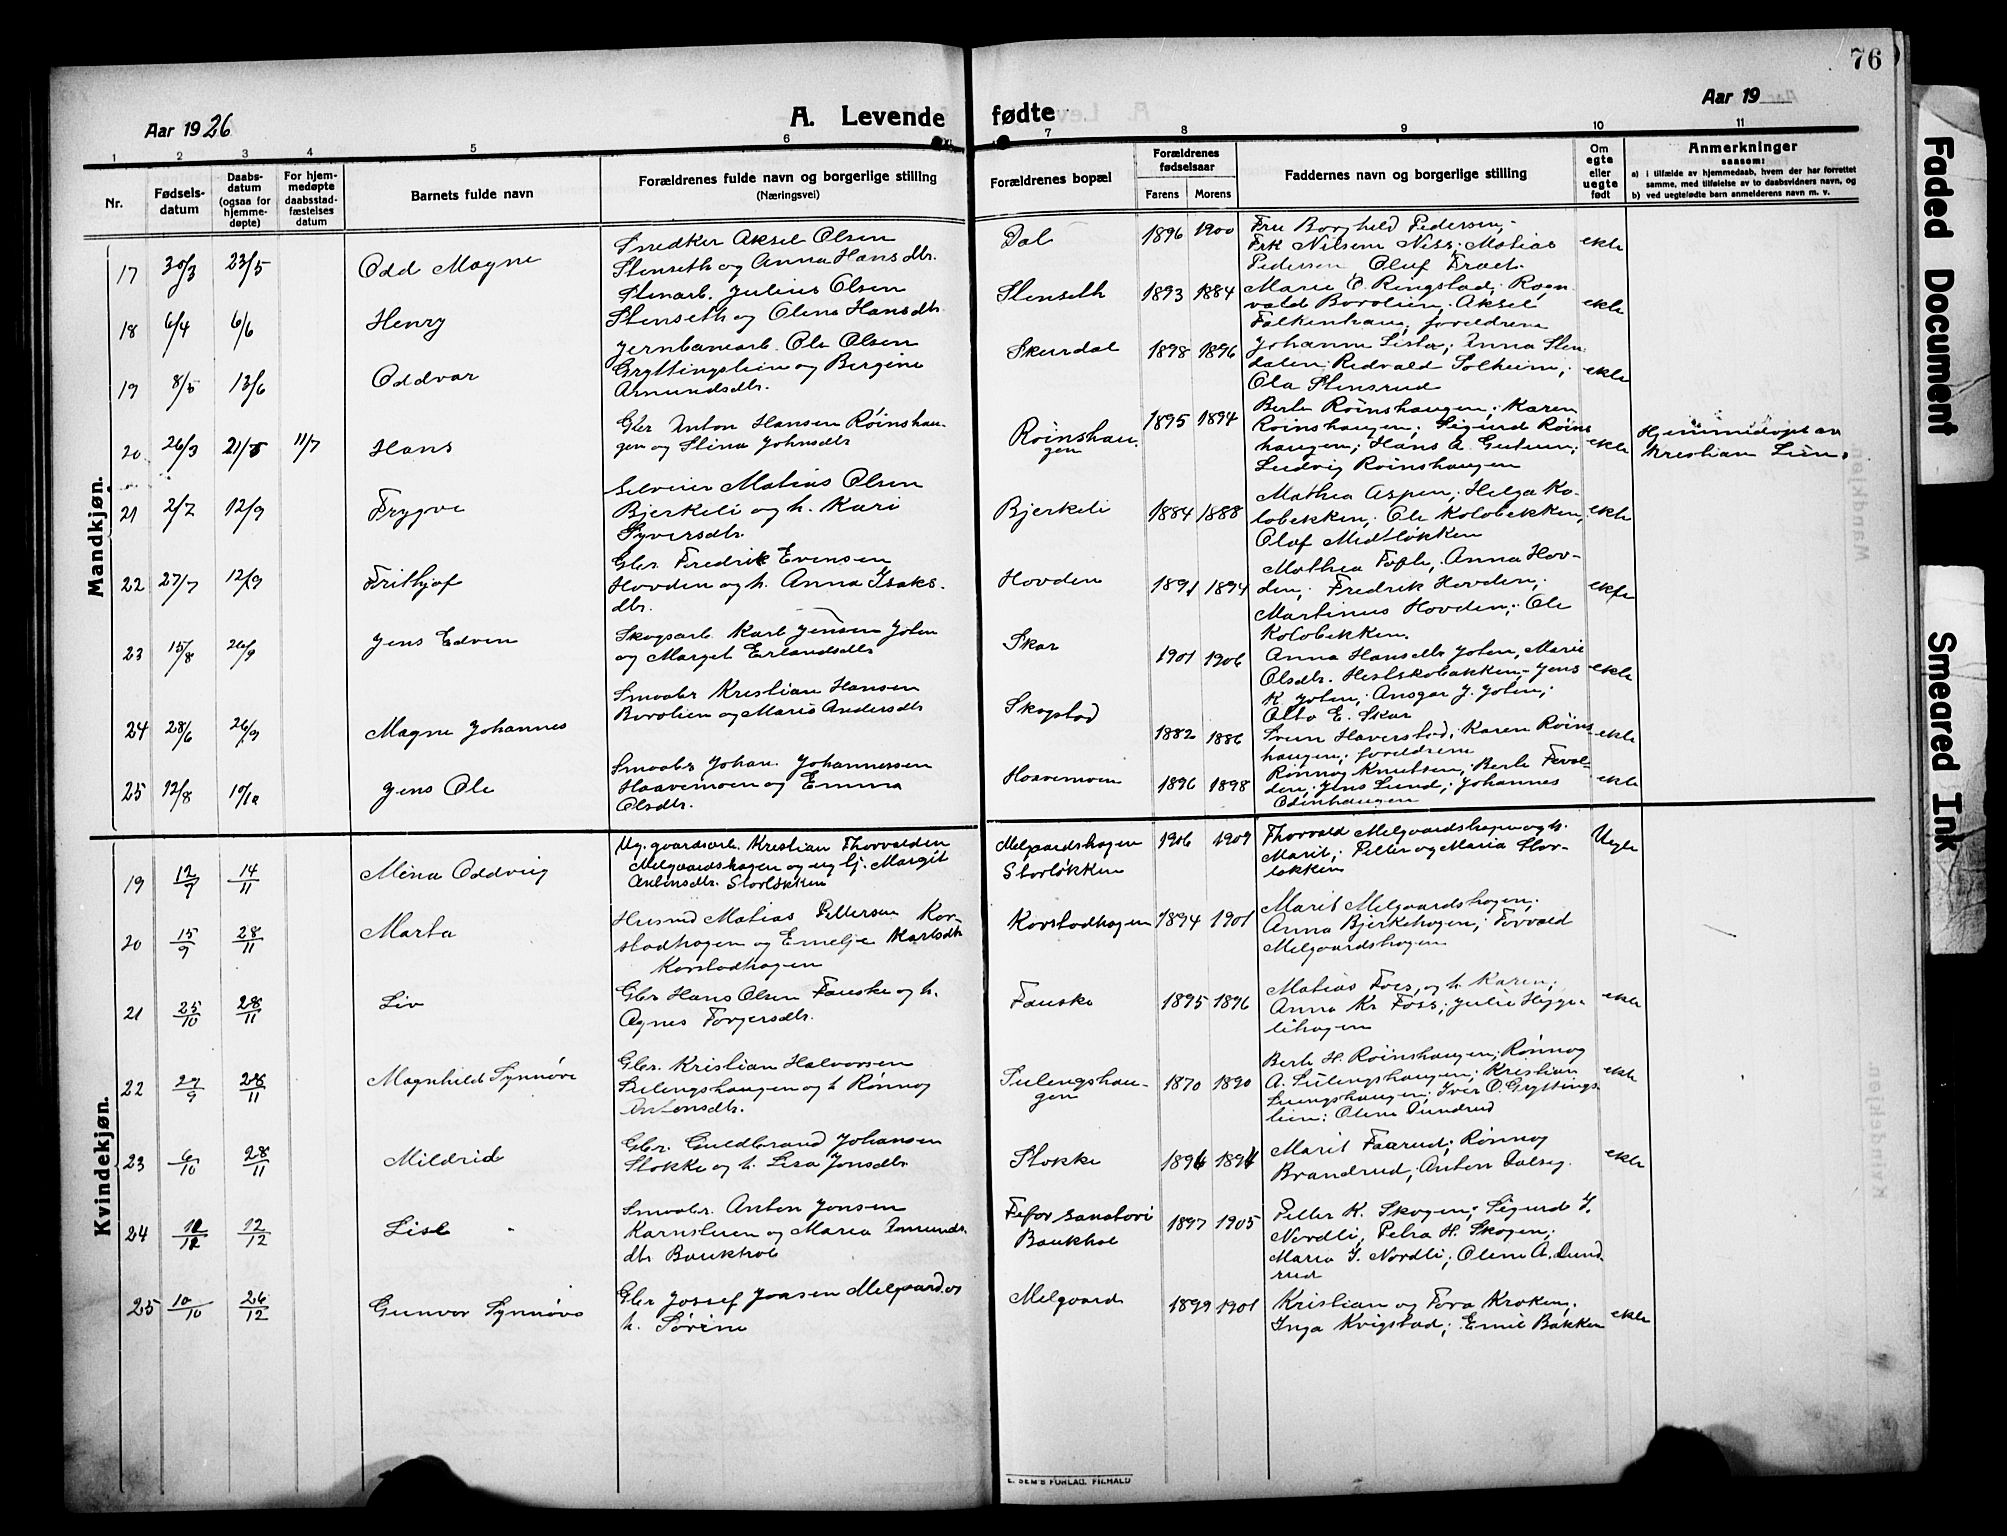 76
Aar 1926
A. Levende fødte
Aar 19
1 2 3 4 5 6 7 8 9 10 11
Nr.
Fødsels-
datum
Daabs-
datum
(ogsaa for
hjemme-
døpte)
For hjem-
medøpte
daabsstad-
fæstelses
datum
Barnets fulde navn
Forældrenes fulde navn og borgerlige stilling
(Næringsvei)
Forældrenes bopæl
Forældrenes
fødselsaar
Farens Morens
Faddernes navn og borgerlige stilling
Om
egte
eller
uegte
født
Anmerkninger
saasom:
a) i tilfælde av hjemmedaab, hvem der har forrettet
samme, med tilføielse av to daabsvidners navn, og
b) ved uegtefødte barn anmelderens navn m. v.
Mandkjøn.
17 30/3 23/5 Odd Magne
Snedker Aksel Olsen
Stenseth og Anna Hansdtr.
Dal 1896 1900
Fru Borghild Pedersen;
Frk Nilsine Niss; Matias
Pedersen Oluf Traet.
ekte
18 6/4 6/6 Henry
Stenarb. Julius Olsen
Stenseth og Olena Hansdtr.
Stenseth 1893 1884
Marie O. Ringstad; Ragn
vald Borolien; Aksel
Falkenhaug, foreldrene
ekte
19 8/5 13/6 Oddvar
Jernbanearb. Ole Olsen
Gryttingslien og Bergine
Amundsdtr.
Skurdal 1898 1896
Johanne Lista; Anna Sten
dalen; Redvald Solheim;
Ola Stensrud
ekte
20 26/3 21/5 11/7 Hans
Gbr Anton Hansen Röinshau-
gen og Stina Johnsdtr
Röinshau
gen
1895 1894
Berte Röinshaugen; Karen
Roinshaugen; Sigurd Röins
haugen; Hans A.
Ludvig Roinshaugen
ekte
Hjemmedøpt av
Kristian Lün.
21 2/7 12/9 Trygve
Matias Olsen
Bjerkeli og h. Kari
Syversdtr.
Bjerkeli 1884 1888
Mathea Aspen; Helga Ko-
lobekken; Ole Kolobekken;
Olaf Midtløkken
ekte
22 27/7 12/9 Frithjof
Gbr. Fredrik Evensen
Hovden og h. Anna Isaks.
dtr.
Hovden 1891 1894
Mathea Anna Hov-
den; Fredrik Hovden;
Martinus Hovden; Ole
Kolobekken.
ekte
23 15/8 26/9 Jens Edvin
Skogsarb. Karl Jensen Joten
og Marget Erlandsdtr
Skar 1901 1906
Anna Hansdtr Joten, Marie
Olsdtr. Hestskobakken- Jens
K Joten; Ansgar J. Joten;
Otto E. Skar
ekte
24 28/6 26/9 Magne Johannes
Smaabr Kristian Hansen
Borolien og Maris Andersdtr
Skogstad 1882 1886
Svein Haverstad; Karen Röins
haugen; foreldrene
ekte
25 12/8 10/10 Jens Ole
Smaabr Johan. Johannessen
Haavemoen og Emma
Olsdtr.
Haavemoen 1896 1898
Rønnog Knutsen; Berte Fevol-
den; Jens Lund; Johannes
Odinhaugen
ekte
Kvindekjøn.
19 12/9 14/11 Mina Oddveig
Ug. gaardsarb. Kristian Thorvalden
Melgaardshagen og ug tj. Margit
Antonsdtr. Storløkken
Melgaardshagen
Storløkken
1906 1909
Thorvald Melgaardshagen og h.
Marit; Petter og Maria Stor-
løkken
Uegte
20 15/9 28/11 Marta
Husmd Matias Pettersen Kor-
stadhagen og Emelje Karlsdtr
Korstadhagen
Korstadhagen 1894 1901
Marit Melgaardshagen;
Anna Bjerkehagen; Torvald
Melgaardshagen
21 25/10 28/11 Liv
Gbr Hans Olsen Fauske og h.
Agnes Torgersdtr.
Fauske 1895 1896
Matias Foss, og h. Karen;
Anna Kr Foss; Julie Hygge-
lihagen
ekte
22 27/9 28/11 Magnhild Synnöve
Gbr. Kristian Halvorsen
Sulengshaugen og h Rönnog
Antonsdtr.
Sulengshau-
gen
1870 1890
Berte H. Roinshaugen; Rönnog
A. Sulengshaugen; Kristian
Sulengshaugen; Iver O. Gryttings-
lien; Olena Sundrud
ekte
23 6/10 28/11 Mildrid
Gbr. Guldbrand Johansen
Stokke og h. Lisa Jonsdtr
Stokke 1894 1894
Marit Faarud; Rönnog
Brandrud; Anton Dalseg.
ekte
24 12/12 Lise
Smaabr. Anton Jonsen
Karnslien og Maria Amunds
dtr Baukhol
Fefor sanatori
Baukhol
1897 1905
Petter K. Skogen; Sigurd J.
Nordli; Petra H. Skogen;
Maria J. Nordli; Olena A. Sund
rud
25 10/10 26/12 Gunvor Synnöve
Gbr Jossef Joasen Melgaard og
h. Sörine
Melgaard 1899 1901
Kristian og Tora Kroken;
Inga Kvigstad; Emil Bakken
ekte
E. SEM'S FORLAG. F.HALD
Faded Document
Smeared Ink